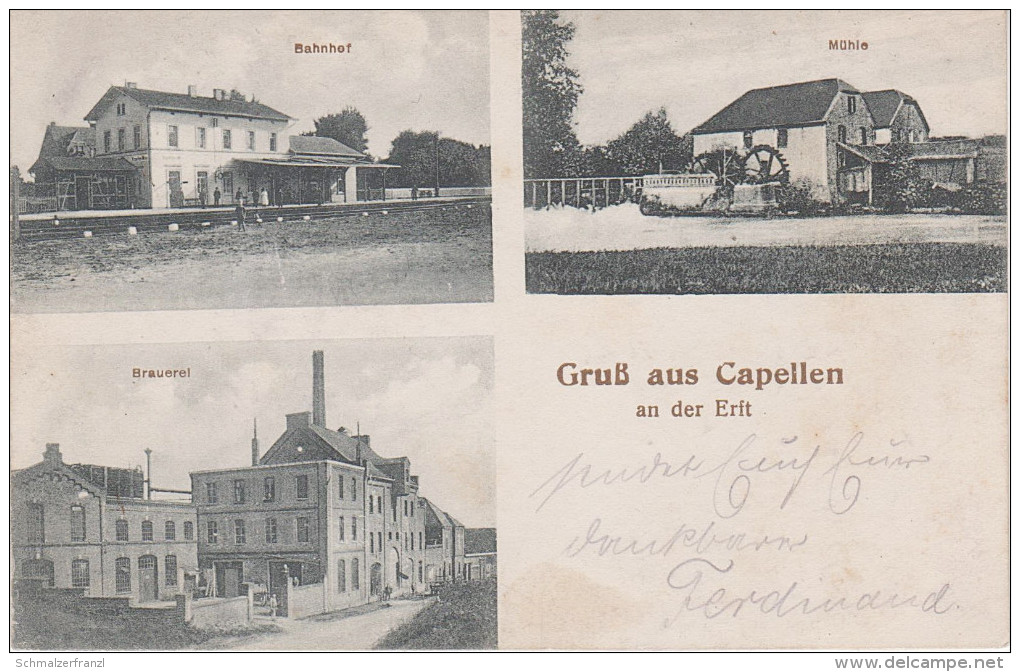 Bahnhof
Mühle
Brauerei
Gruß aus Capellen
an der Erft
sendet Euch Euer
dankbarer
Ferdinand.
Schmalzerfranzl
www.delcampe.net